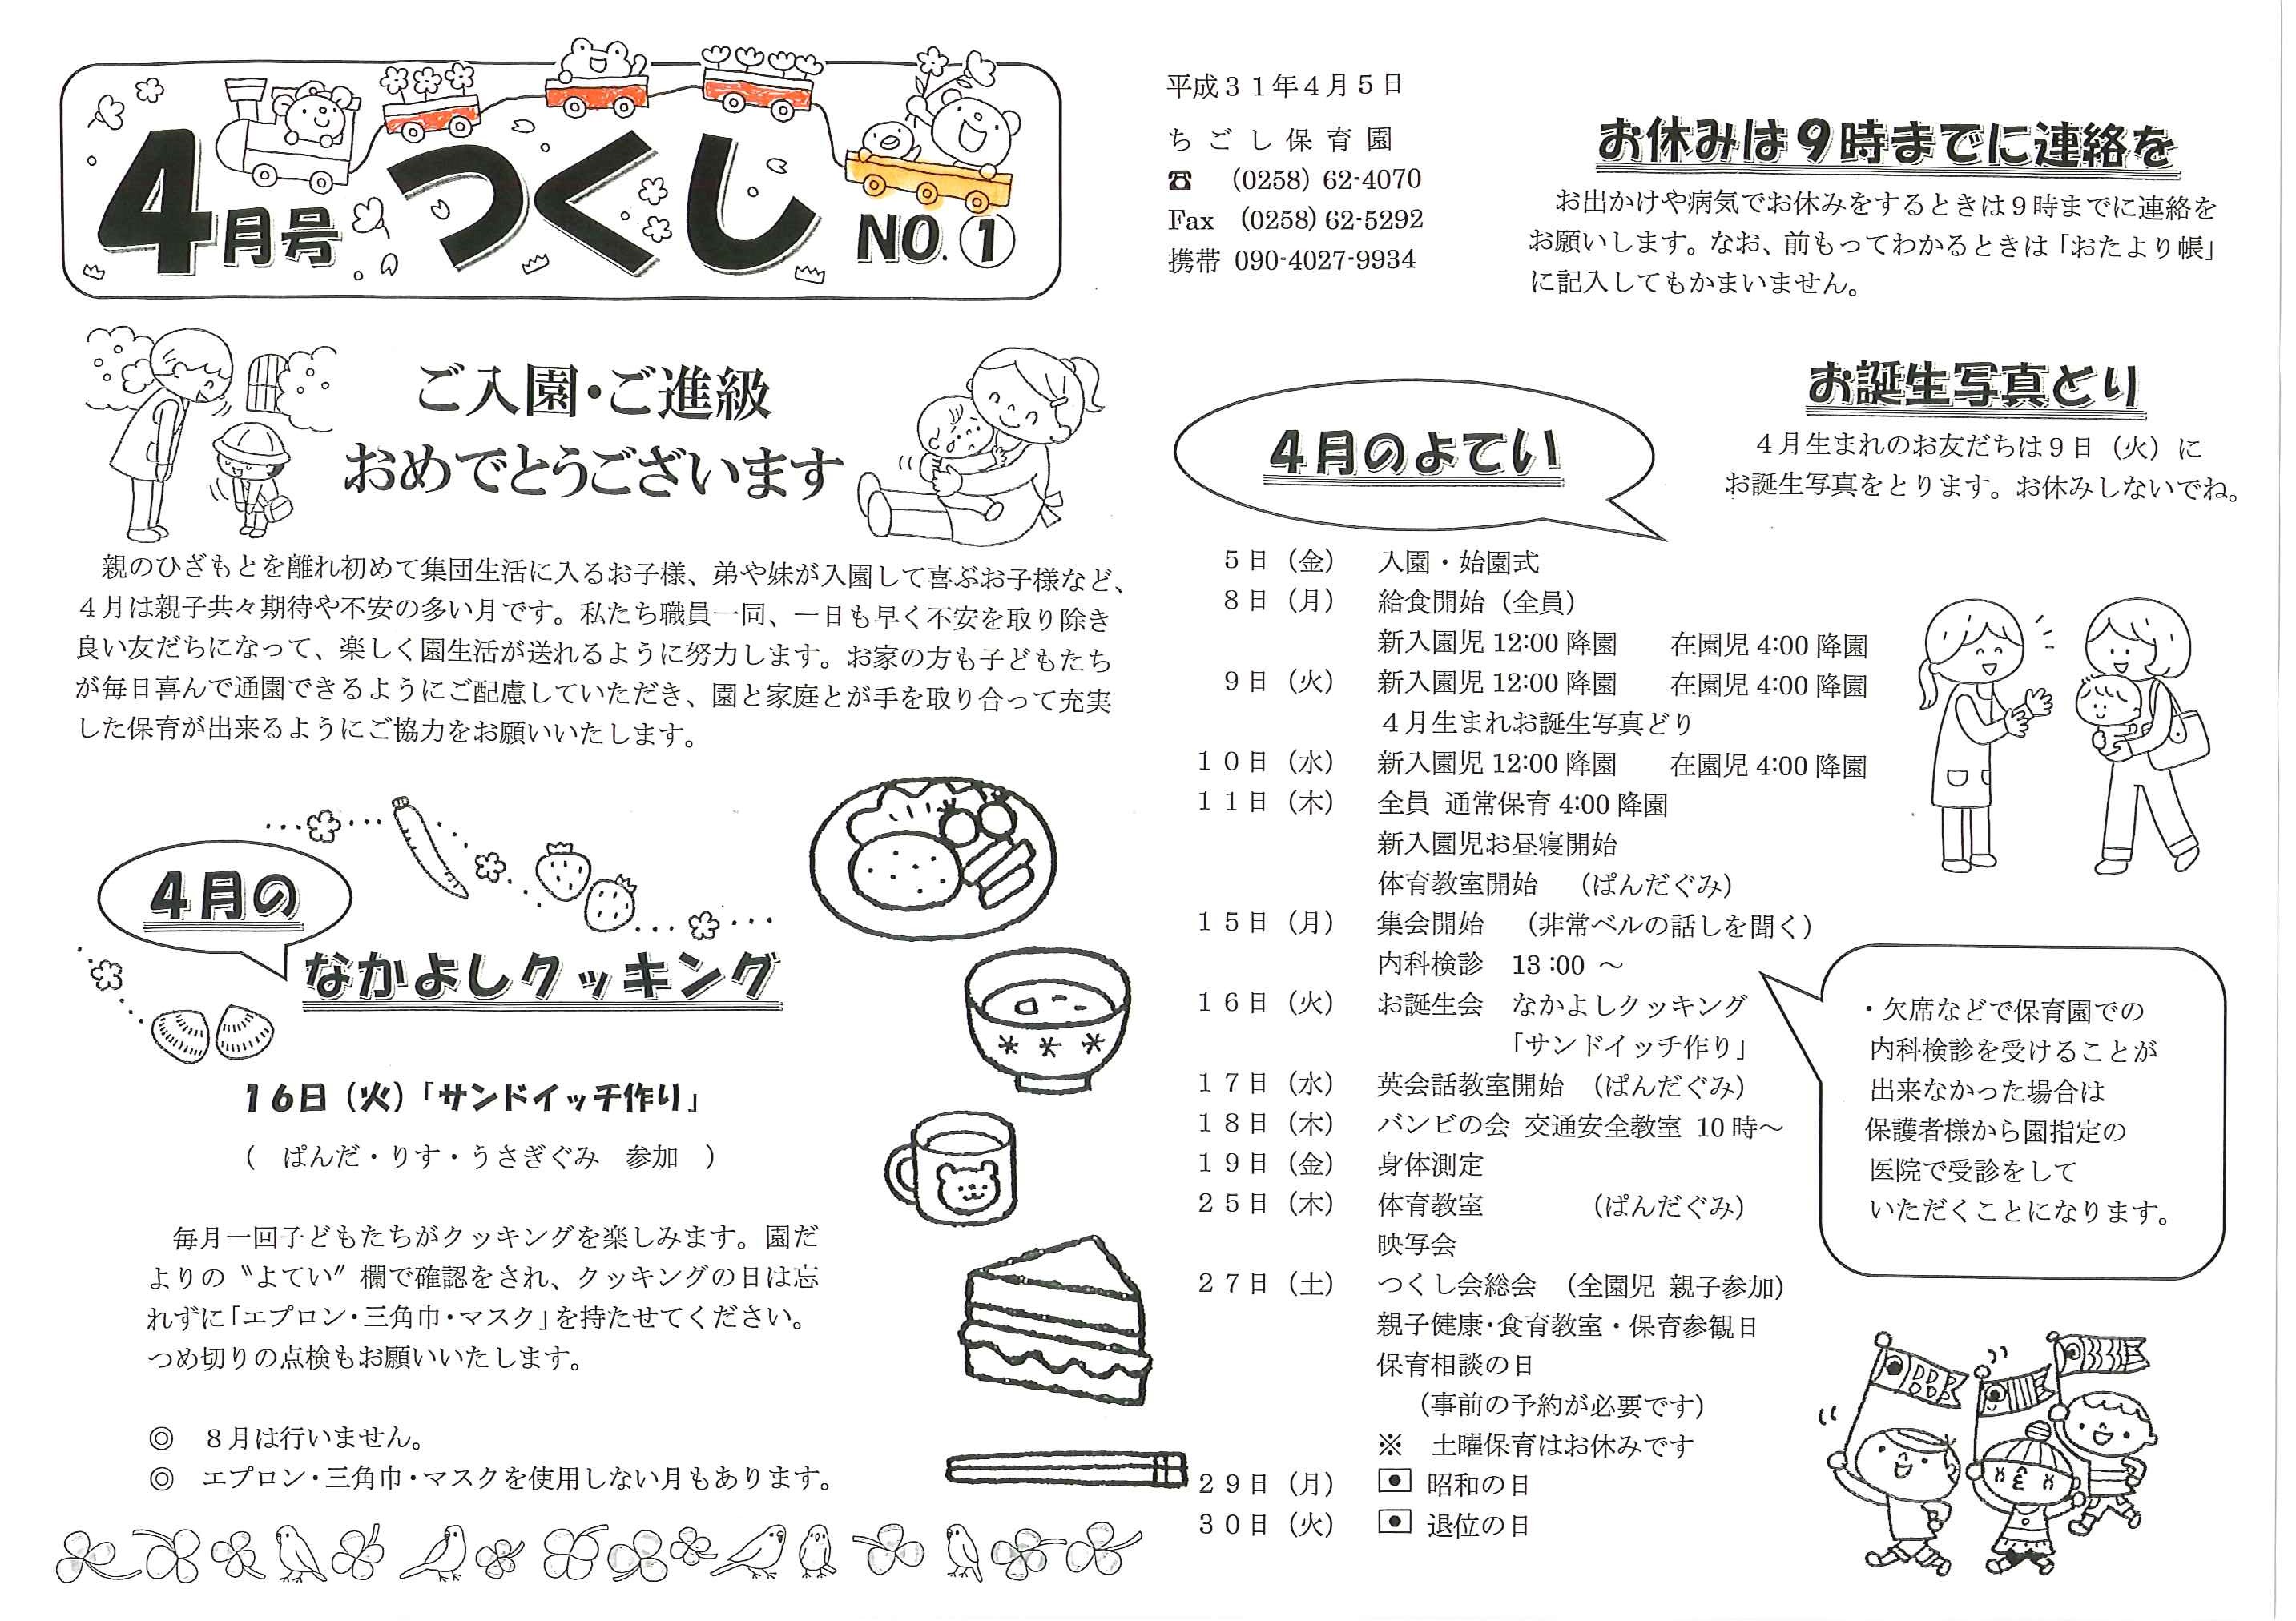 4月号 つくし NO.①
ご入園・ご進級
おめでとうございます
親のひざもとを離れ初めて集団生活に入るお子様、弟や妹が入園して喜ぶお子様など、
４月は親子共々期待や不安の多い月です。私たち職員一同、一日も早く不安を取り除き
良い友だちになって、楽しく園生活が送れるように努力します。お家の方も子どもたち
が毎日喜んで通園できるようにご配慮していただき、園と家庭とが手を取り合って充実
した保育が出来るようにご協力をお願いいたします。
4月の
なかよしクッキング
16日（火）「サンドイッチ作り」
（　ぱんだ・りす・うさぎぐみ　参加　）
毎月一回子どもたちがクッキングを楽しみます。園だ
よりの〝よてい〞欄で確認をされ、クッキングの日は忘
れずに「エプロン・三角巾・マスク」を持たせてください。
つめ切りの点検もお願いいたします。
◎　８月は行いません。
◎　エプロン・三角巾・マスクを使用しない月もあります。
平成３１年４月５日
ちごし保育園
☎　（0258）62-4070
Fax　（0258）62-5292
携帯　090-4027-9934
お休みは９時までに連絡を
お出かけや病気でお休みをするときは９時までに連絡を
お願いします。なお、前もってわかるときは「おたより帳」
に記入してもかまいません。
お誕生写真どり
４月生まれのお友だちは９日（火）に
お誕生写真をとります。お休みしないでね。
4月のよてい
５日（金）　入園・始園式
８日（月）　給食開始（全員）
新入園児 12:00 降園　　在園児 4:00 降園
９日（火）　新入園児 12:00 降園　　在園児 4:00 降園
４月生まれお誕生写真どり
１０日（水）　新入園児 12:00 降園　　在園児 4:00 降園
１１日（木）　全員 通常保育 4:00 降園
新入園児お昼寝開始
体育教室開始　（ぱんだぐみ）
１５日（月）　集会開始　（非常ベルの話しを聞く）
内科検診　13:00 ～
１６日（火）　お誕生会　なかよしクッキング
「サンドイッチ作り」
１７日（水）　英会話教室開始　（ぱんだぐみ）
１８日（木）　バンビの会 交通安全教室 10時～
１９日（金）　身体測定
２５日（木）　体育教室　　　　（ぱんだぐみ）
映写会
２７日（土）　つくし会総会　（全園児 親子参加）
親子健康・食育教室・保育参観日
保育相談の日
（事前の予約が必要です）
※　土曜保育はお休みです
２９日（月）　昭和の日
３０日（火）　退位の日
・欠席などで保育園での
内科検診を受けることが
出来なかった場合は
保護者様から園指定の
医院で受診をして
いただくことになります。